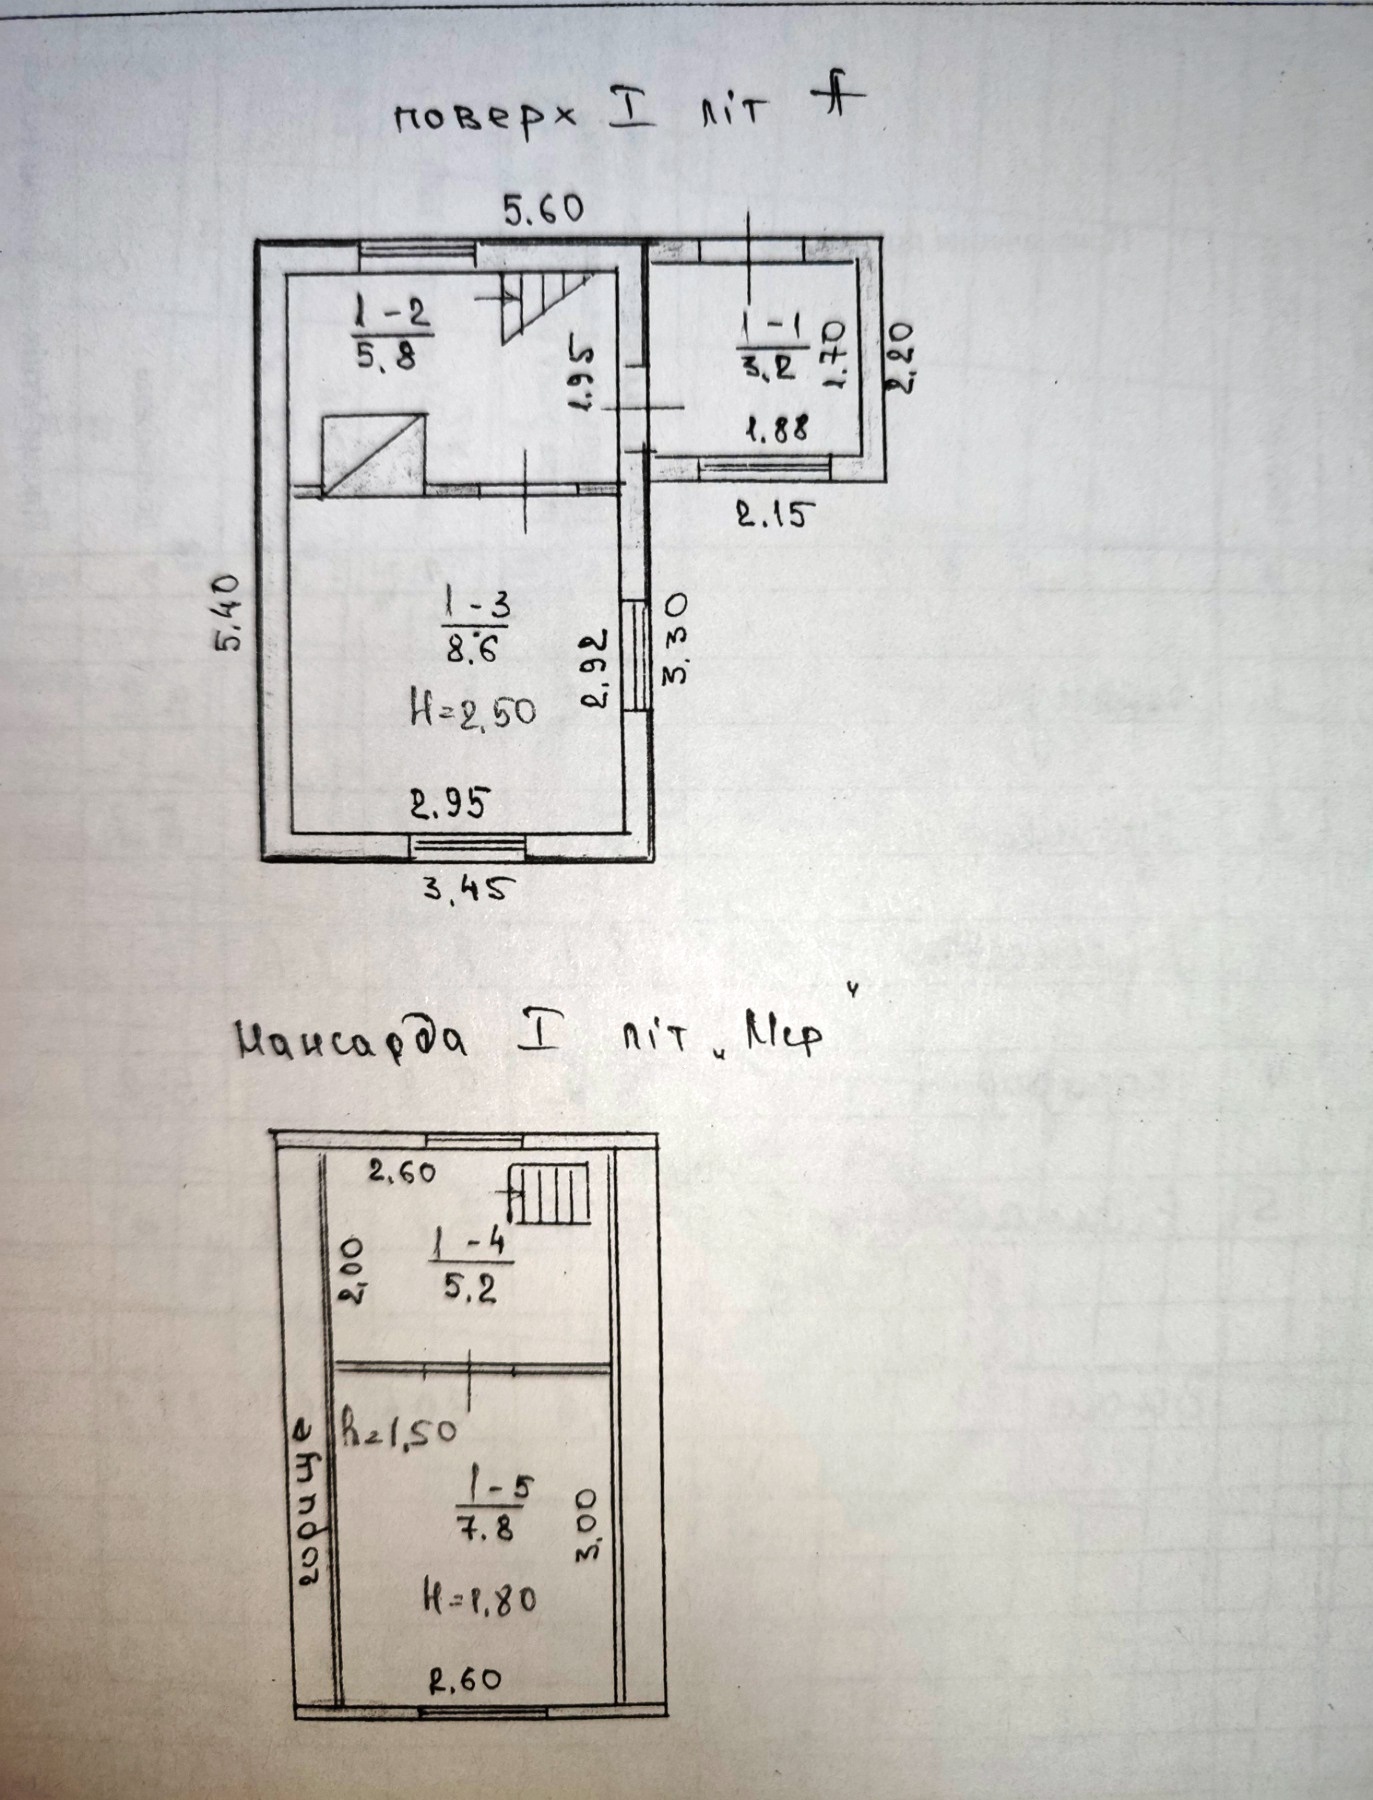 поверх I літ А
5.60
1-2
5.8
1.95
1-1
3.2
1.70
2.20
1.88
2.15
5.40
1-3
8.6
H=2,50
2.92
3.30
2.95
3.45
Мансарда I літ „Мср"
2,60
2,00
1-4
5.2
h=1,50
горище
1-5
7.8
3,00
H=1,80
2.60